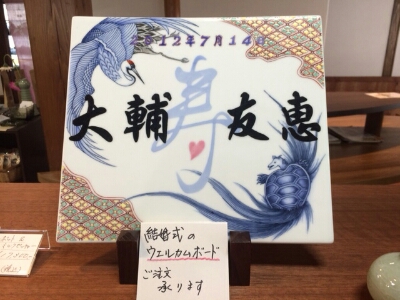 2012年7月14日
寿
大輔 友恵
結婚式の
ウェルカムボード
ご注文
承ります